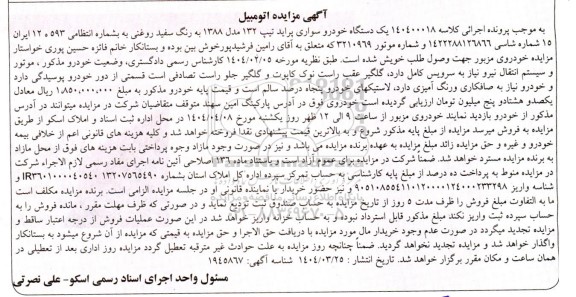 آگهی مزایده اتومبیل
به موجب پرونده اجرائی کلاسه ۱۴۰۴۰۰۰۱۸ یک دستگاه خودرو سواری پراید تیپ ۱۳۲ مدل ۱۳۸۸ به رنگ سفید روغنی به بشماره انتظامی ۵۹۳ ه ۱۲ ایران
۱۵ شماره شاسی ۱۴۲۲۲۸۸۱۲۶۸۶۶ و شماره موتور ۳۲۱۰۹۶۹ که متعلق به آقای رامین فرشیدپورخوش بین بوده و بستانکار خانم فائزه حسین پوری خواستار
مزایده خودروی مزبور جهت وصول طلب خویش شده است. طبق نظریه مورخه ۱۴۰۴/۰۲/۰۵ کارشناس رسمی دادگستری، وضعیت خودرو مذکور ، موتور
و سیستم انتقال نیرو نیاز به سرویس کامل دارد، گلگیر عقب راست نوک کاپوت و گلگیر جلو راست تصادفی است قسمتی از دور خودرو پوسیدگی دارد
و خودرو نیاز به صافکاری ورنگ آمیزی دارد، لاستیکهای خودرو پنجاه درصد سالم است و قیمت پایه خودرو مذکور به مبلغ ۱,۸۵۰,۰۰۰,۰۰۰ ریال معادل
یکصدو هشتادو پنج میلیون تومان ارزیابی گردیده است خودروی فوق در آدرس پارکینگ امین سهند متوقف متقاضیان شرکت در مزایده میتوانند در آدرس
مذکور از خودرو بازدید نمایند خودروی مزبور از ساعت ۹ الی ۱۲ ظهر روز یکشنبه مورخ ۱۴۰۴/۰۴/۰۸ در محل اداره ثبت اسناد و املاک اسکو از طریق
مزایده به فروش میرسد مزایده از مبلغ پایه مذکور شروع و به بالاترین قیمت پیشنهادی نقدا فروخته خواهد شد و کلیه هزینه های قانونی اعم از خلافی بیمه
خودرو و غیره و حق مزایده زائد مبلغ مزایده به عهده برنده مزایده می باشد و نیز در صورت وجود مازاد وجوه پرداختی بابت هزینه های فوق از محل مازاد
به برنده مزایده مسترد خواهد شد. ضمنا شرکت در مزایده برای عموم آزاد است و باستناد ماده ۱۳۶ اصلاحی آئین نامه اجرای مفاد رسمی لازم الاجراء شرکت
در مزایده منوط به پرداخت ده درصد از مبلغ پایه کارشناسی به حساب تمرکز سپرده اداره کل املاک استان بشماره و IR۳۶۰۱۰۰۰۰۴۰۵۴۰۱۳۲۰۷۵۶۵۴۹۰
شناسه واریز ۹۰۵۱۰۸۵۵۴۱۱۰۱۲۰۰۰۰۱۲۴۰۰۰۲۳۳۲۹۸ و نیز حضور خریدار یا نماینده قانونی او در جلسه مزایده الزامی است. برنده مزایده مکلف است
ما به التفاوت مبلغ فروش را ظرف مدت ۵ روز از تاریخ مزایده به حساب صندوق ثبت تودیع نماید و در صورتی که ظرف مهلت مقرر ، مانده فروش را به
حساب سپرده ثبت واریز نکند مبلغ مذکور قابل استرداد نبوده و به حساب خزانه واریز خواهد شد در این صورت عملیات فروش از درجه اعتبار ساقط و
مزایده تجدید میگردد در صورت عدم وجود خریدار مال مورد مزایده با دریافت حق الاجرا و حق مزایده به قیمتی که مزایده از آن شروع میشود به بستانکار
واگذار خواهد شد و مزایده تجدید نخواهد گردید. ضمناً چنانچه روز مزایده به علت حوادث غیر مترقبه تعطیل گردد مزایده روز اداری بعد از تعطیلی در
همان ساعت و مکان مقرر برگزار خواهد شد. تاریخ انتشار : ۱۴۰۴/۰۳/۲۵ شناسه آگهی: ۱۹۴۵۸۶۷
مسئول واحد اجرای اسناد رسمی اسکو- علی نصرتی